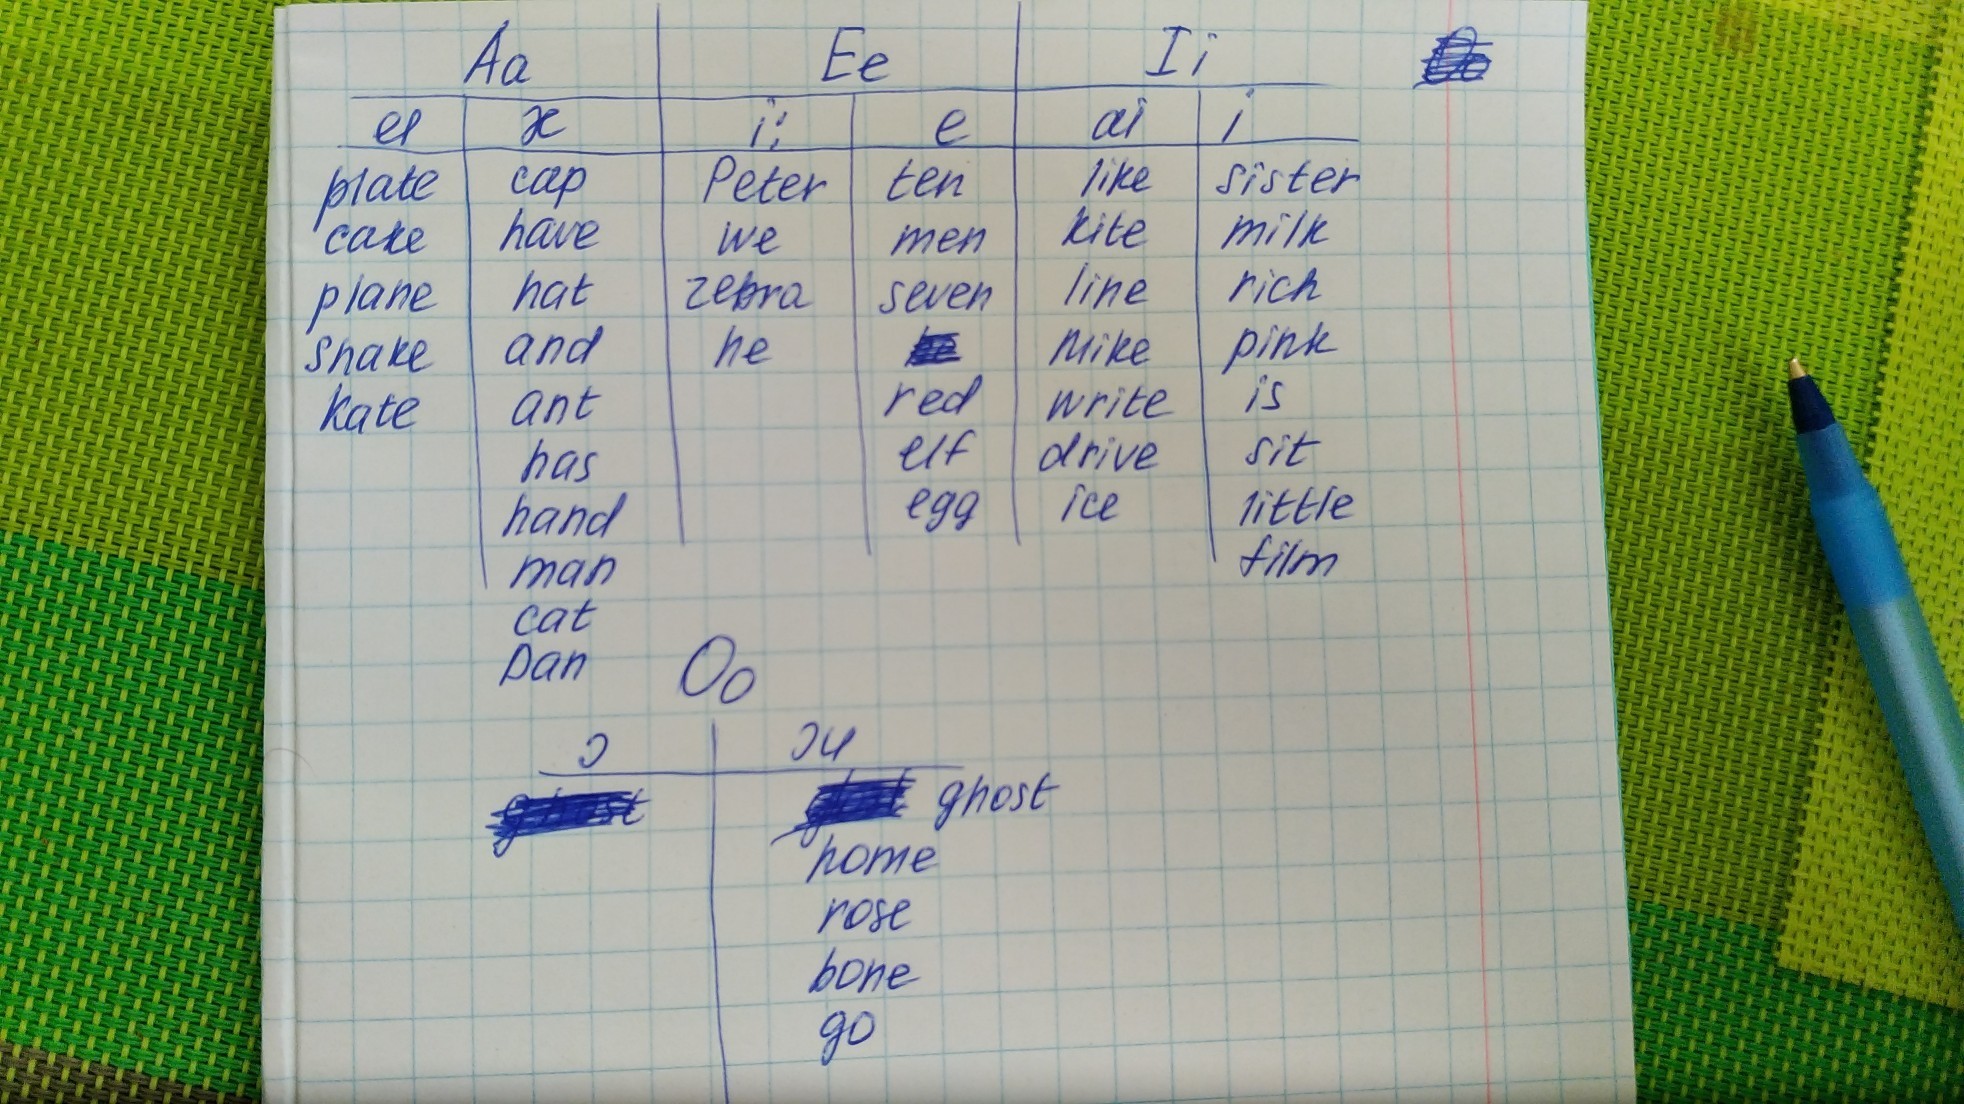 Aa Ee Ii
ei æ i: e ai i
plate cap Peter ten like sister
cake have we men kite milk
plane hat zebra seven line rich
snake and he Mike pink
Kate ant red write is
has elf drive sit
hand egg ice little
man film
cat
Dan
Oo
ɔ ɔu
ghost
home
rose
bone
go